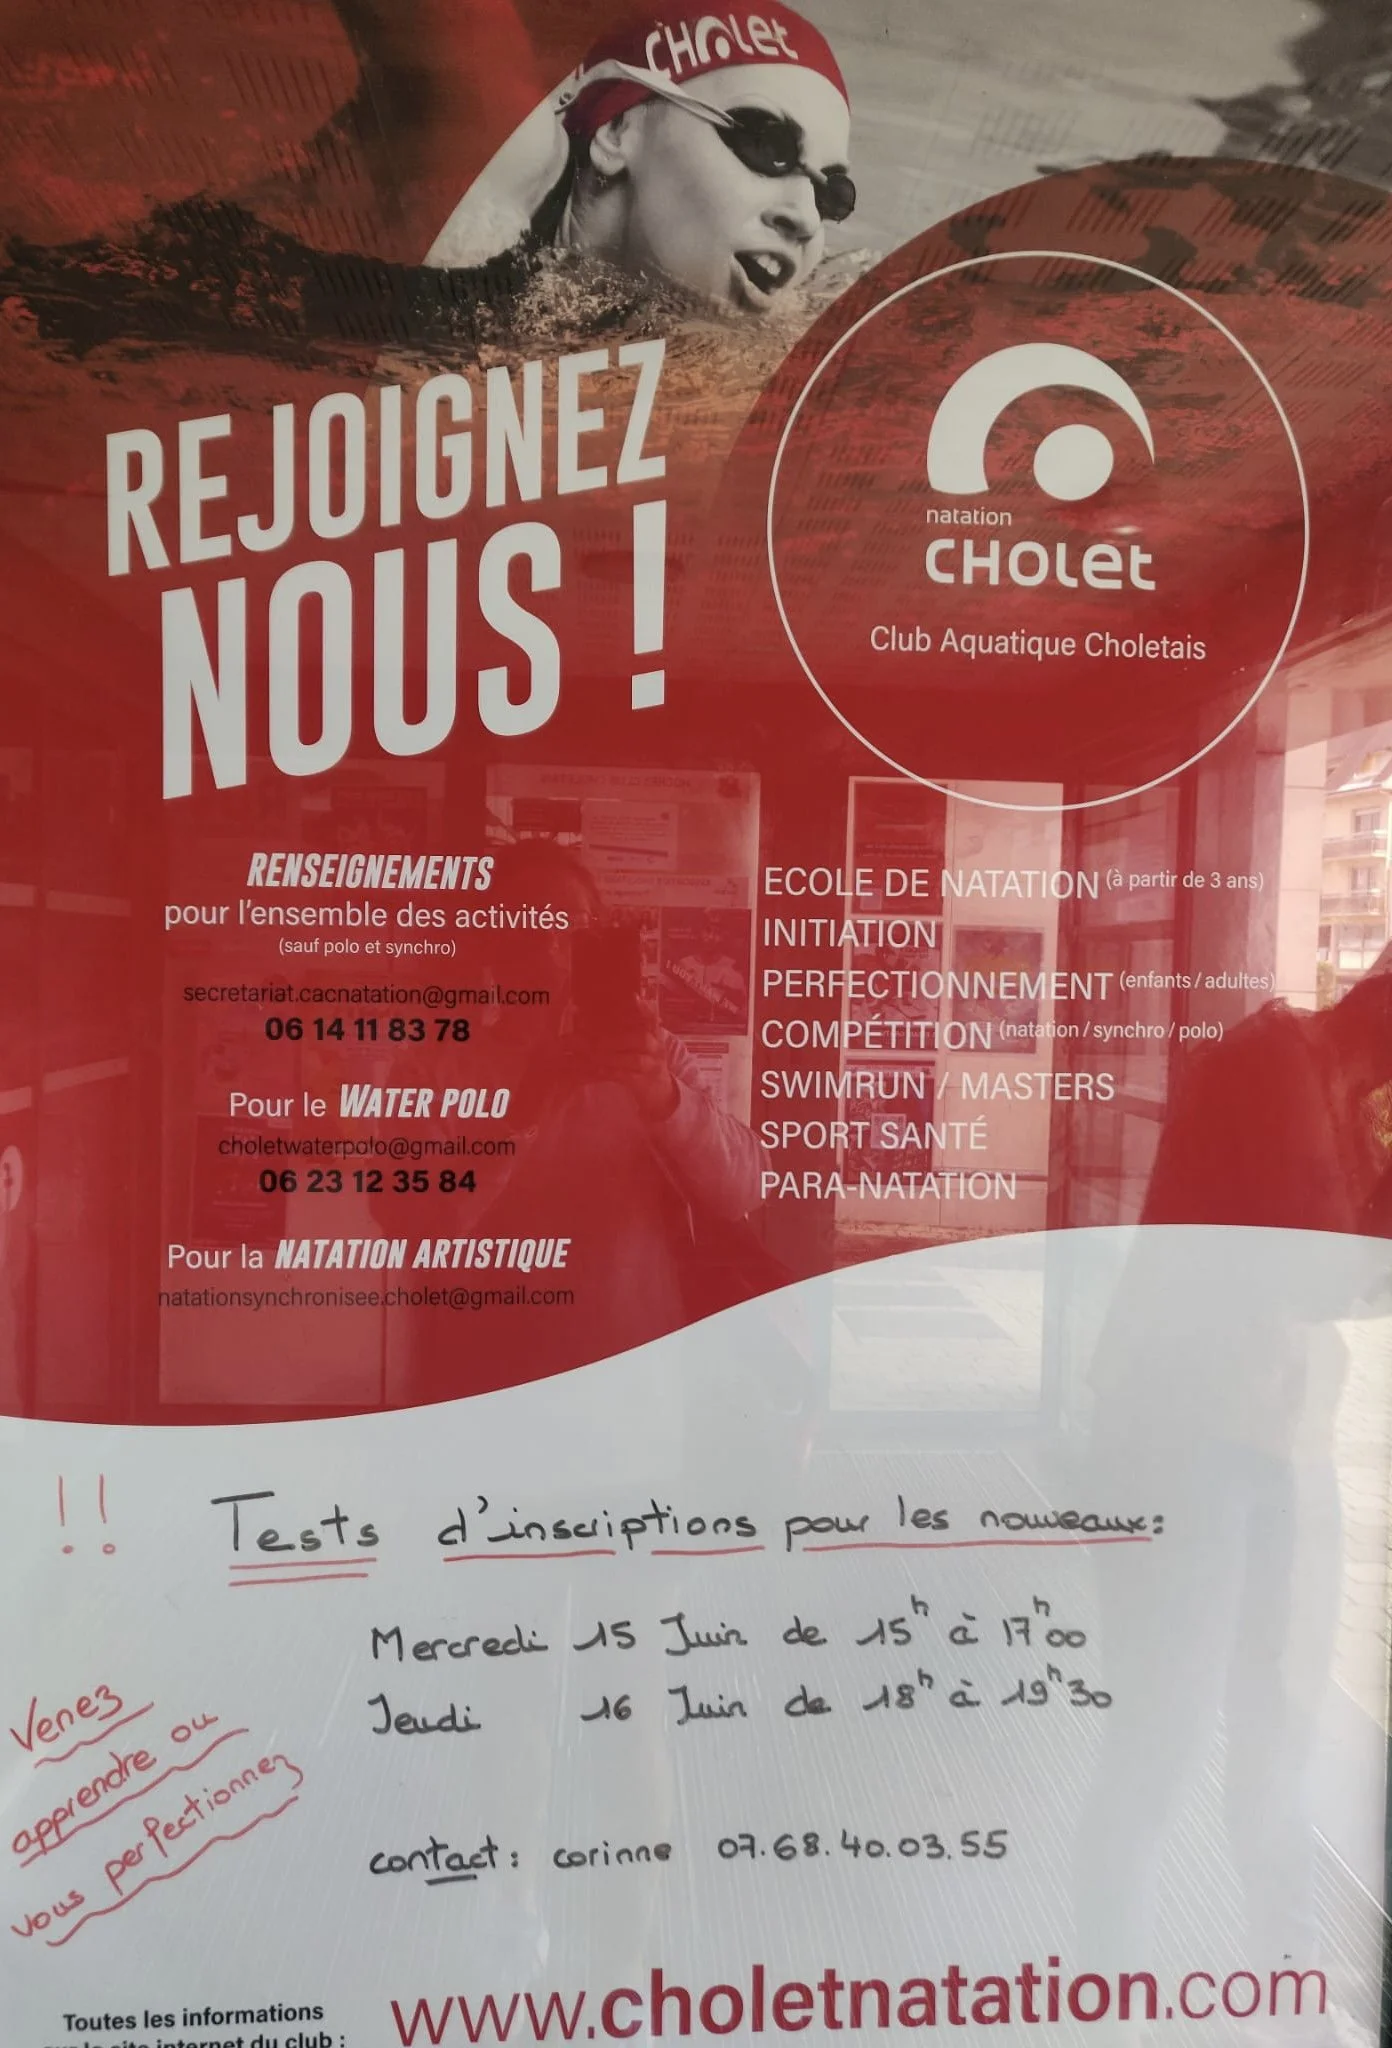 CHOLET
REJOIGNEZ
NOUS !
natation
CHOLET
Club Aquatique Choletais
RENSEIGNEMENTS
pour l'ensemble des activités
(sauf polo et synchro)
secretariat.cacnatation@gmail.com
06 14 11 83 78
Pour le WATER POLO
choletwaterpolo@gmail.com
06 23 12 35 84
Pour la NATATION ARTISTIQUE
natationsynchronisee.cholet@gmail.com
ECOLE DE NATATION (à partir de 3 ans)
INITIATION
PERFECTIONNEMENT (enfants / adultes)
COMPÉTITION (natation / synchro / polo)
SWIMRUN / MASTERS
SPORT SANTÉ
PARA-NATATION
!! Tests d'inscriptions pour les nouveaux:
Mercredi 15 Juin de 15h à 17h00
Jeudi 16 Juin de 18h à 19h30
Venez
apprendre ou
vous perfectionnez
contact : corinne 07.68.40.03.55
Toutes les informations
sur le site internet du club :
www.choletnatation.com